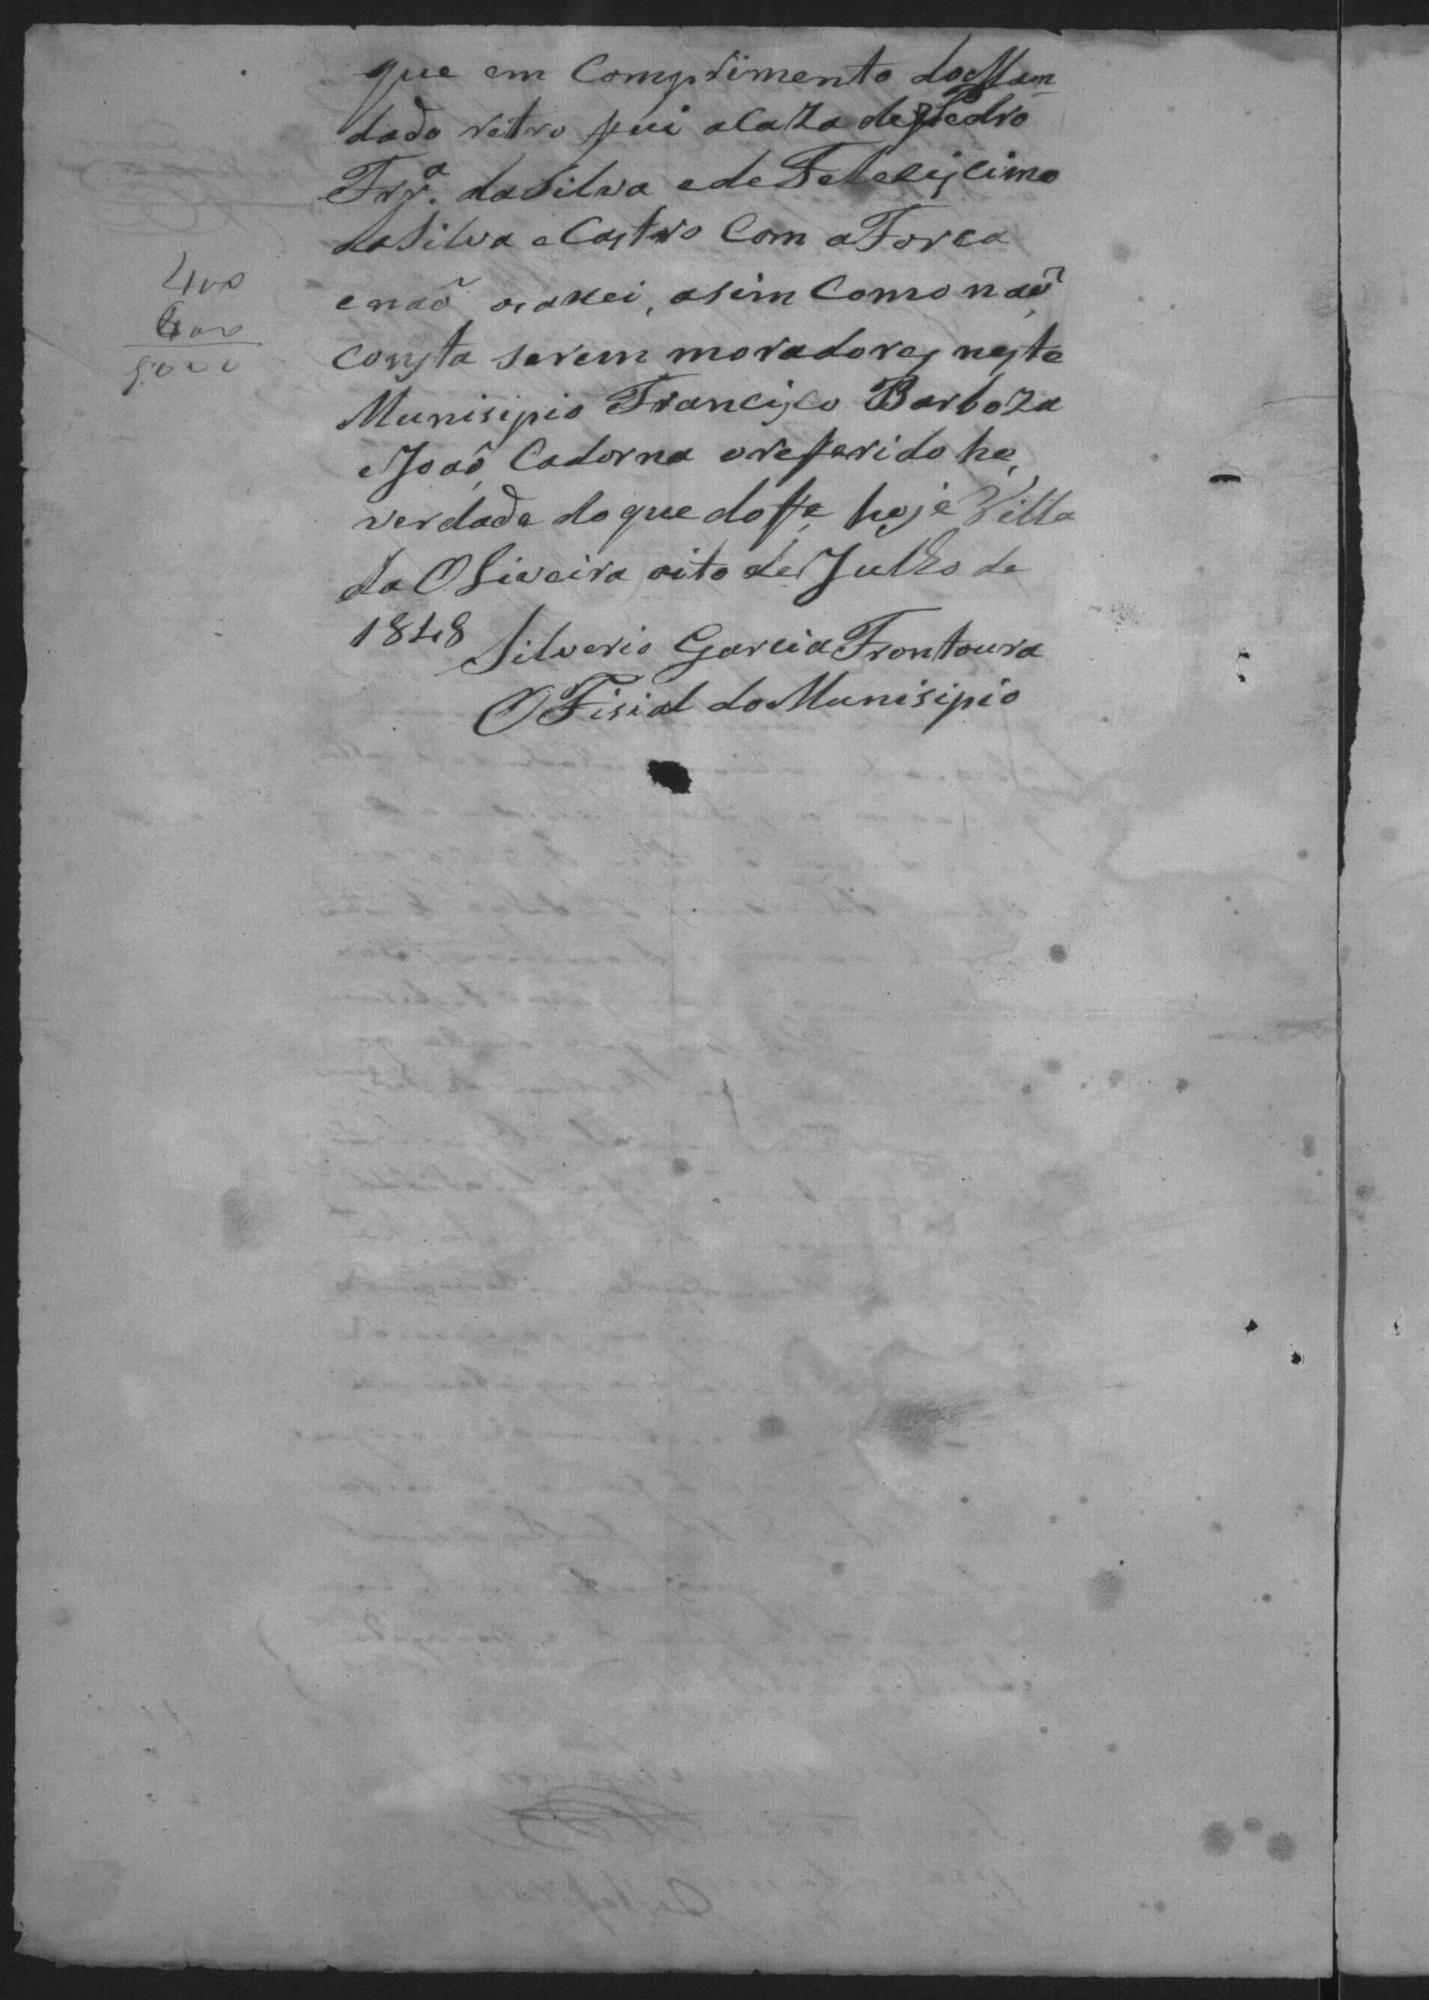 que em Comprimento do Man
dado retro fui a Caza de Pedro
Frz.ª da Silva e de Feleciscimo
da Silva e Castro Com a Forca
e naõ os axei, asim Como naõ
consta serem moradores neste
Munisipio Francisco Barboza
e Joaõ Cadorna o referido he
verdade do que dofe hoje Villa
da Oliveira oito de Julho de
1848 Silverio Garcia Frontoura
O Fisial do Munisipio
400
600